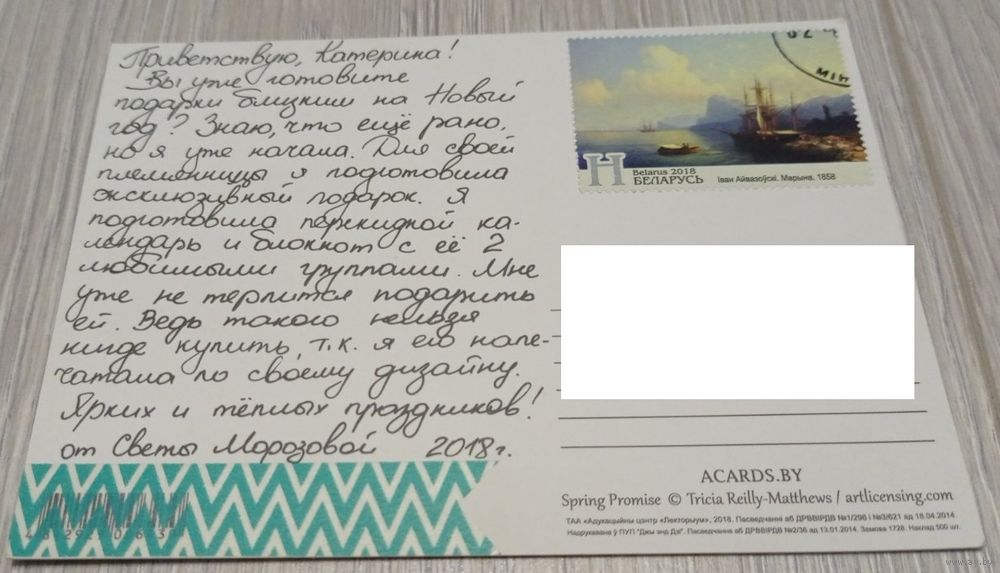 Приветствую, Катерина!
Вы уже готовите
подарки близким на Новый
год? Знаю, что ещё рано,
но я уже начала. Для своей
племянницы я подготовила
эксклюзивный подарок. Я
подготовила перекидной ка-
лендарь и блокнот с её 2
любимыми группами. Мне
уже не терпится подарить
ей. Ведь такого нельзя
нигде купить, т.к. я его напе-
чатала по своему дизайну.
Ярких и тёплых праздников!
от Светы Морозовой 2018г.
МІН
Н
Belarus 2018
БЕЛАРУСЬ
Іван Айвазоўскі. Марына. 1858
ACARDS.BY
Spring Promise © Tricia Reilly-Matthews / artlicensing.com
ТАА «Адукацыйны цэнтр «Лекторыум», 2018. Пасведчанні аб ДРВВІРДВ №1/296 і №3/621 ад 18.04.2014.
Надрукавана ў ПУП "Джы энд Дзі". Пасведчанне аб ДРВВІРДВ №2/36 ад 13.01.2014. Замова 1728. Наклад 500 шт.